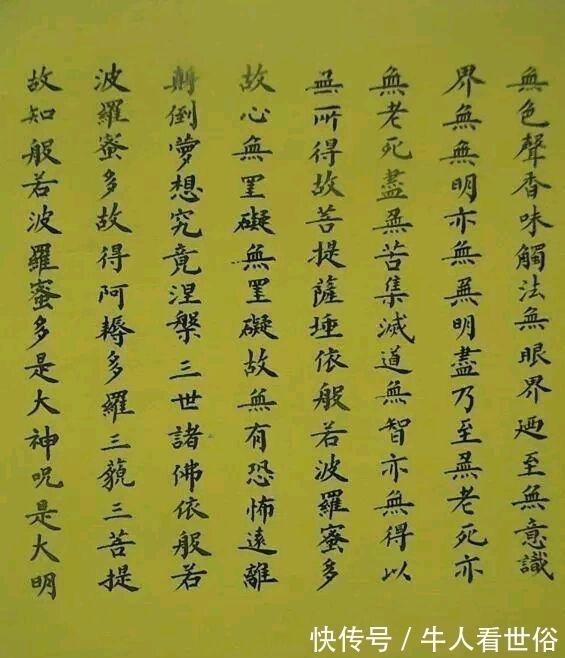 無色聲香味觸法無眼界廼至無意識
界無無明亦無無明盡乃至無老死亦
無老死盡無苦集滅道無智亦無得以
無所得故菩提薩埵依般若波羅蜜多
故心無罣礙無罣礙故無有恐怖遠離
顛倒夢想究竟涅槃三世諸佛依般若
波羅蜜多故得阿耨多羅三藐三菩提
故知般若波羅蜜多是大神呪是大明
快传号/牛人看世俗